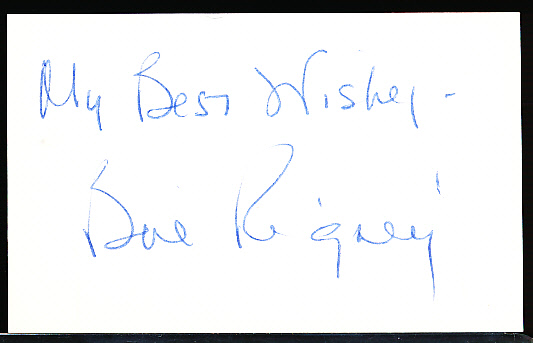 My Best Wishes -
Bill Rigney